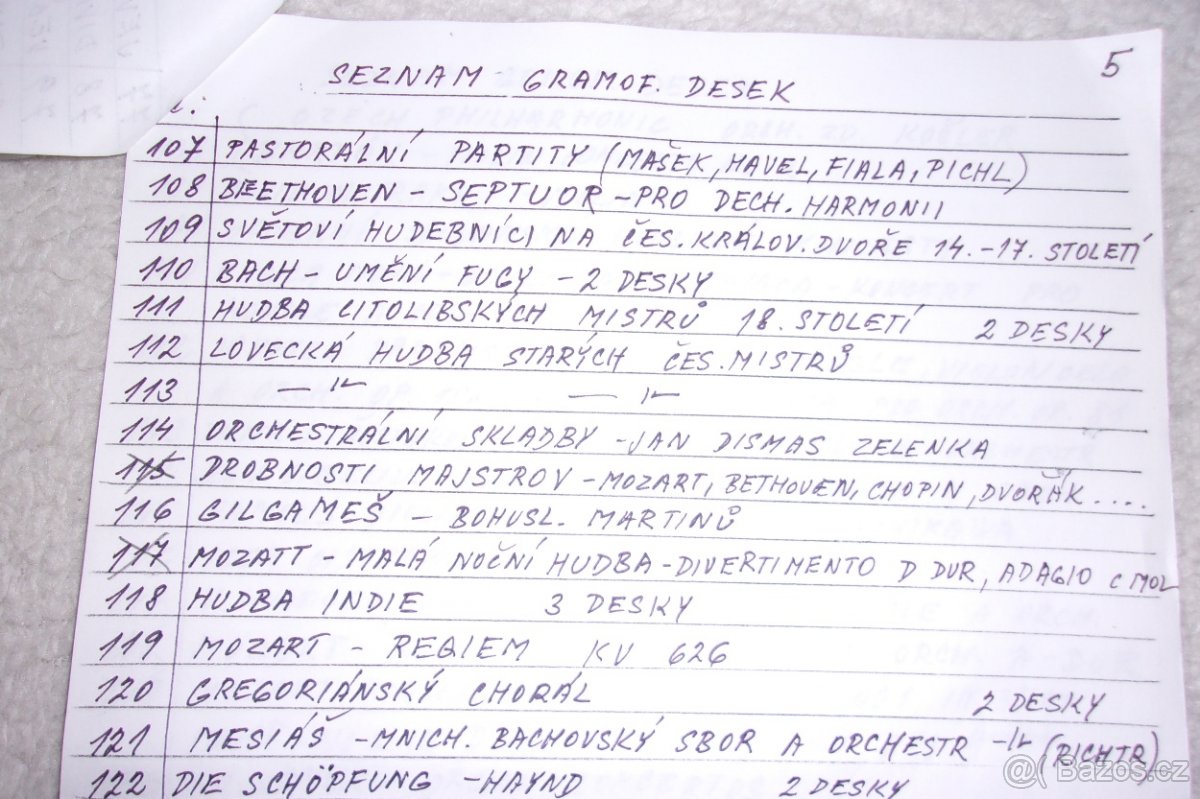 5
SEZNAM GRAMOF. DESEK
107 PASTORÁLNÍ PARTITY (MAŠEK, HAVEL, FIALA, PICHL)
108 BEETHOVEN - SEPTUOR - PRO DECH. HARMONII
109 SVĚTOVÍ HUDEBNÍCI NA ČES. KRÁLOV. DVOŘE 14.-17. STOLETÍ
110 BACH - UMĚNÍ FUGY - 2 DESKY
111 HUDBA CITOLIBSKÝCH MISTRŮ 18. STOLETÍ 2 DESKY
112 LOVECKÁ HUDBA STARÝCH ČES. MISTRŮ
113 -"- -"-
114 ORCHESTRÁLNÍ SKLADBY - JAN DISMAS ZELENKA
115 DROBNOSTI MAJSTROV - MOZART, BETHOVEN, CHOPIN, DVOŘÁK....
116 GILGAMEŠ - BOHUSL. MARTINŮ
117 MOZATT - MALÁ NOČNÍ HUDBA - DIVERTIMENTO D DUR, ADAGIO C MOL
118 HUDBA INDIE 3 DESKY
119 MOZART - REQIEM KV 626
120 GREGORIÁNSKÝ CHORÁL 2 DESKY
121 MESIÁŠ - MNICH. BACHOVSKÝ SBOR A ORCHESTR -"- (RICHTR)
122 DIE SCHÖPFUNG - HAYND 2 DESKY
@ Bazos.cz